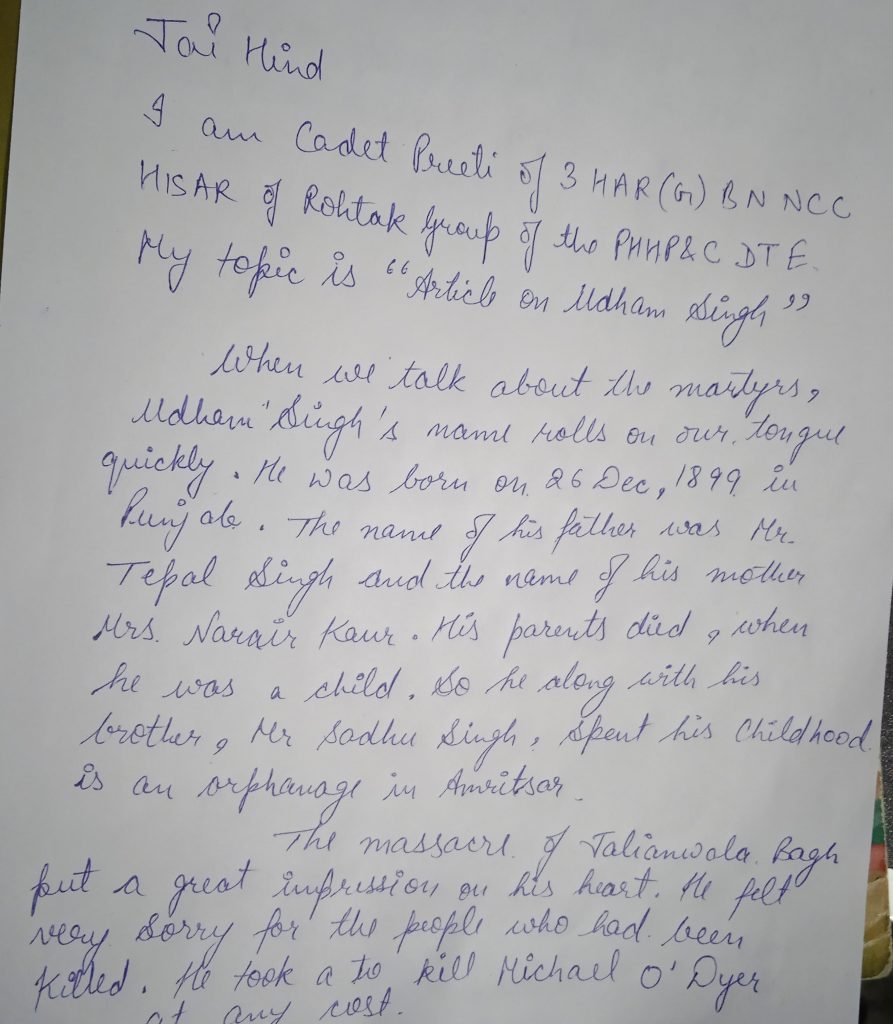 Jai Hind
I am Cadet Preeti of 3 HAR(G) BN NCC
HISAR of Rohtak Group of the PHHP&C DTE.
My topic is “Article on Udham Singh”
When we talk about the martyrs,
Udham Singh's name rolls on our tongue
quickly. He was born on 26 Dec, 1899 in
Punjab. The name of his father was Mr.
Tepal Singh and the name of his mother
Mrs. Narair Kaur. His parents died, when
he was a child. So he along with his
brother, Mr Sadhu Singh, spent his Childhood
is an orphanage in Amritsar.
The massacre of Jalianwala Bagh
put a great impression on his heart. He felt
very sorry for the people who had been
killed. He took a to kill Michael O'Dyer
at any cost.